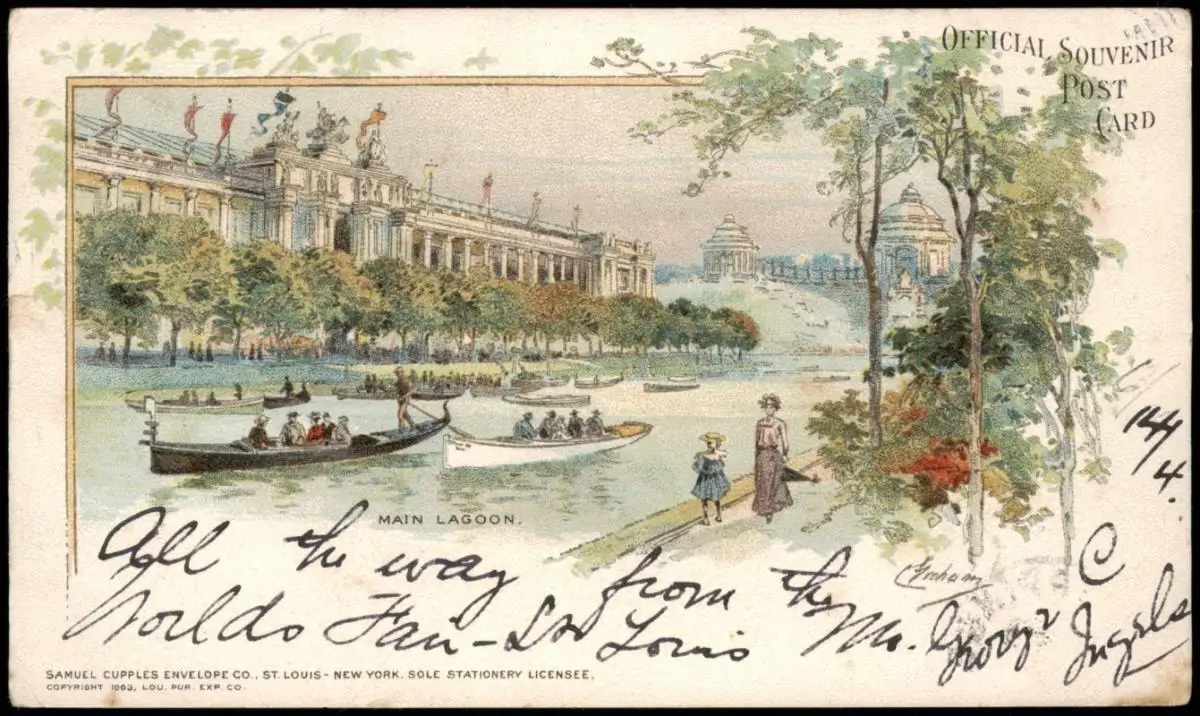 OFFICIAL SOUVENIR
POST
CARD
MAIN LAGOON.
14/
4.
All the way from the
Worlds Fair - St Louis
Mr. George C
Ingals
SAMUEL CUPPLES ENVELOPE CO., ST. LOUIS - NEW YORK. SOLE STATIONERY LICENSEE.
COPYRIGHT 1903, LOU. PUR. EXP. CO.